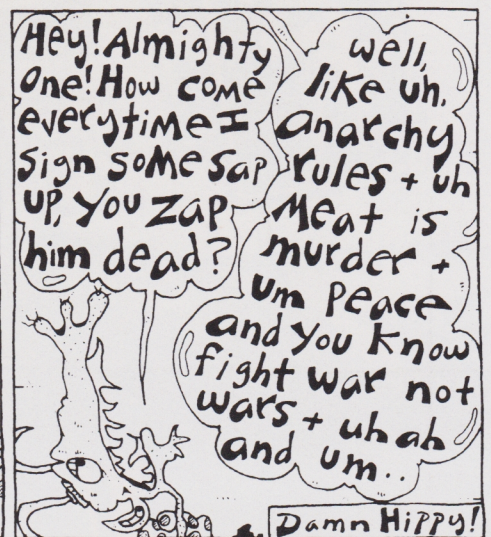 Hey! Almighty
One! How come
everytime I
sign some sap
up, you zap
him dead?
well,
like uh,
anarchy
rules + uh
meat is
murder +
um peace
and you know
fight war not
wars + uh ah
and um..
Damn Hippy!